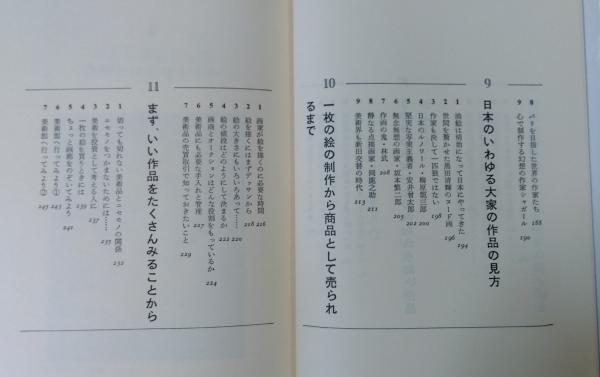 8 パリを目指した世界の作家たち 188
9 心で製作する幻想の作家シャガール 190
9
日本のいわゆる大家の作品の見方
1 油絵は明治になって日本にやってきた 194
2 世間を驚かせた黒田清輝のヌード画 196
3 作家も決して一匹狼ではない 198
4 日本のルノワール・梅原龍三郎 200
5 堅実な写実主義者・安井曾太郎 202
6 無念無想の画家・坂本繁二郎 205
7 作画の鬼・林武 208
8 静なる点描画家・岡鹿之助 211
9 美術界も新旧交替の時代 213
10
一枚の絵の制作から商品として売られ
るまで
1 画家が絵を描くのに必要な時間 216
2 絵を描くにはまずデッサンから 218
3 絵の大きさにもいろいろあって…… 220
4 絵の値段はどのようにして決まるか 222
5 画商とオークションはどんな役割をもっているか 224
6 美術品にも必要な手入れと管理 227
7 美術品の売買取引で知っておきたいこと 229
11
まず、いい作品をたくさんみることから
1 切っても切れない美術品とニセモノの関係 232
2 ニセモノをつかまないためには…… 235
3 美術を投資として考える人に 237
4 一枚の絵を買うときには 239
5 ちょっと画廊をのぞいてみよう 241
6 美術館へ行ってみよう① 243
7 美術館へ行ってみよう② 245